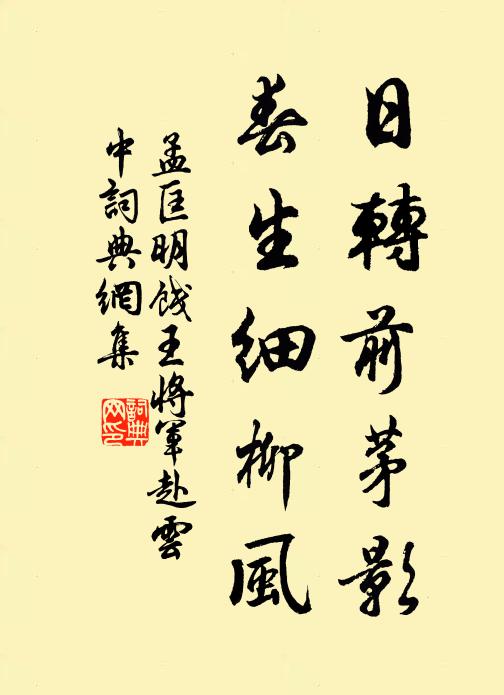 日轉前茅影
春生細柳風
孟匡明餞王將軍赴雲
中詞典網集
詞典
网印